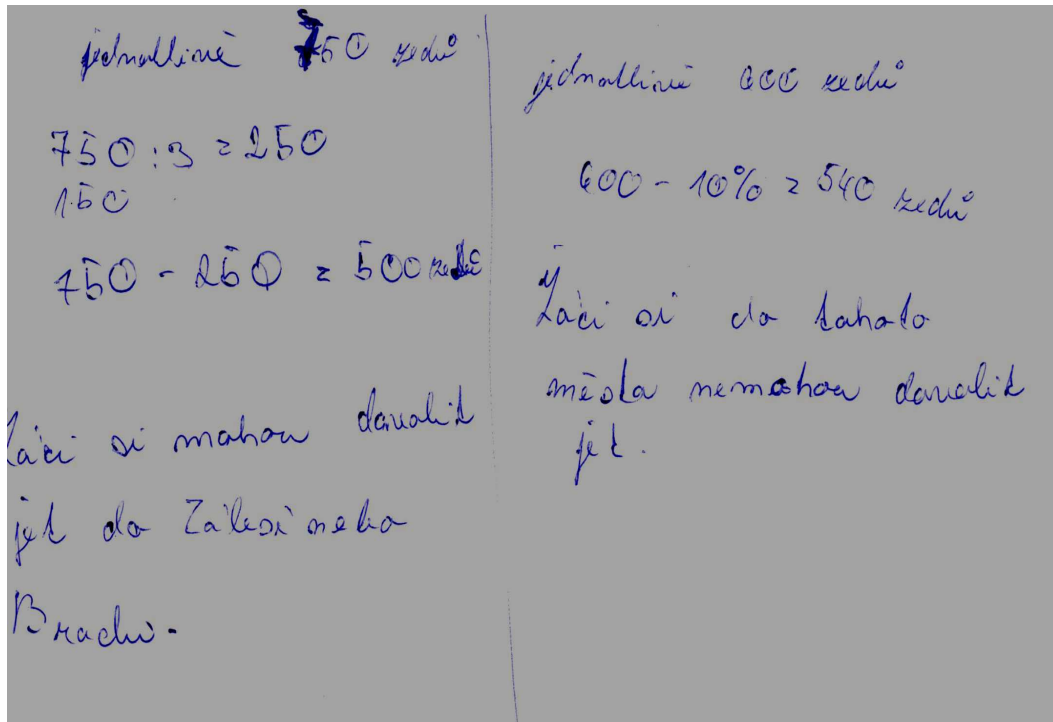 jednotlivě 750 zedů
750 : 3 = 250
150
750 - 250 = 500 zedů
Žáci si mohou dovolit
jet do Zálesí nebo
Brodu.
jednotlivě 600 zedů
600 - 10% = 540 zedů
Žáci si do tohoto
města nemohou dovolit
jet.